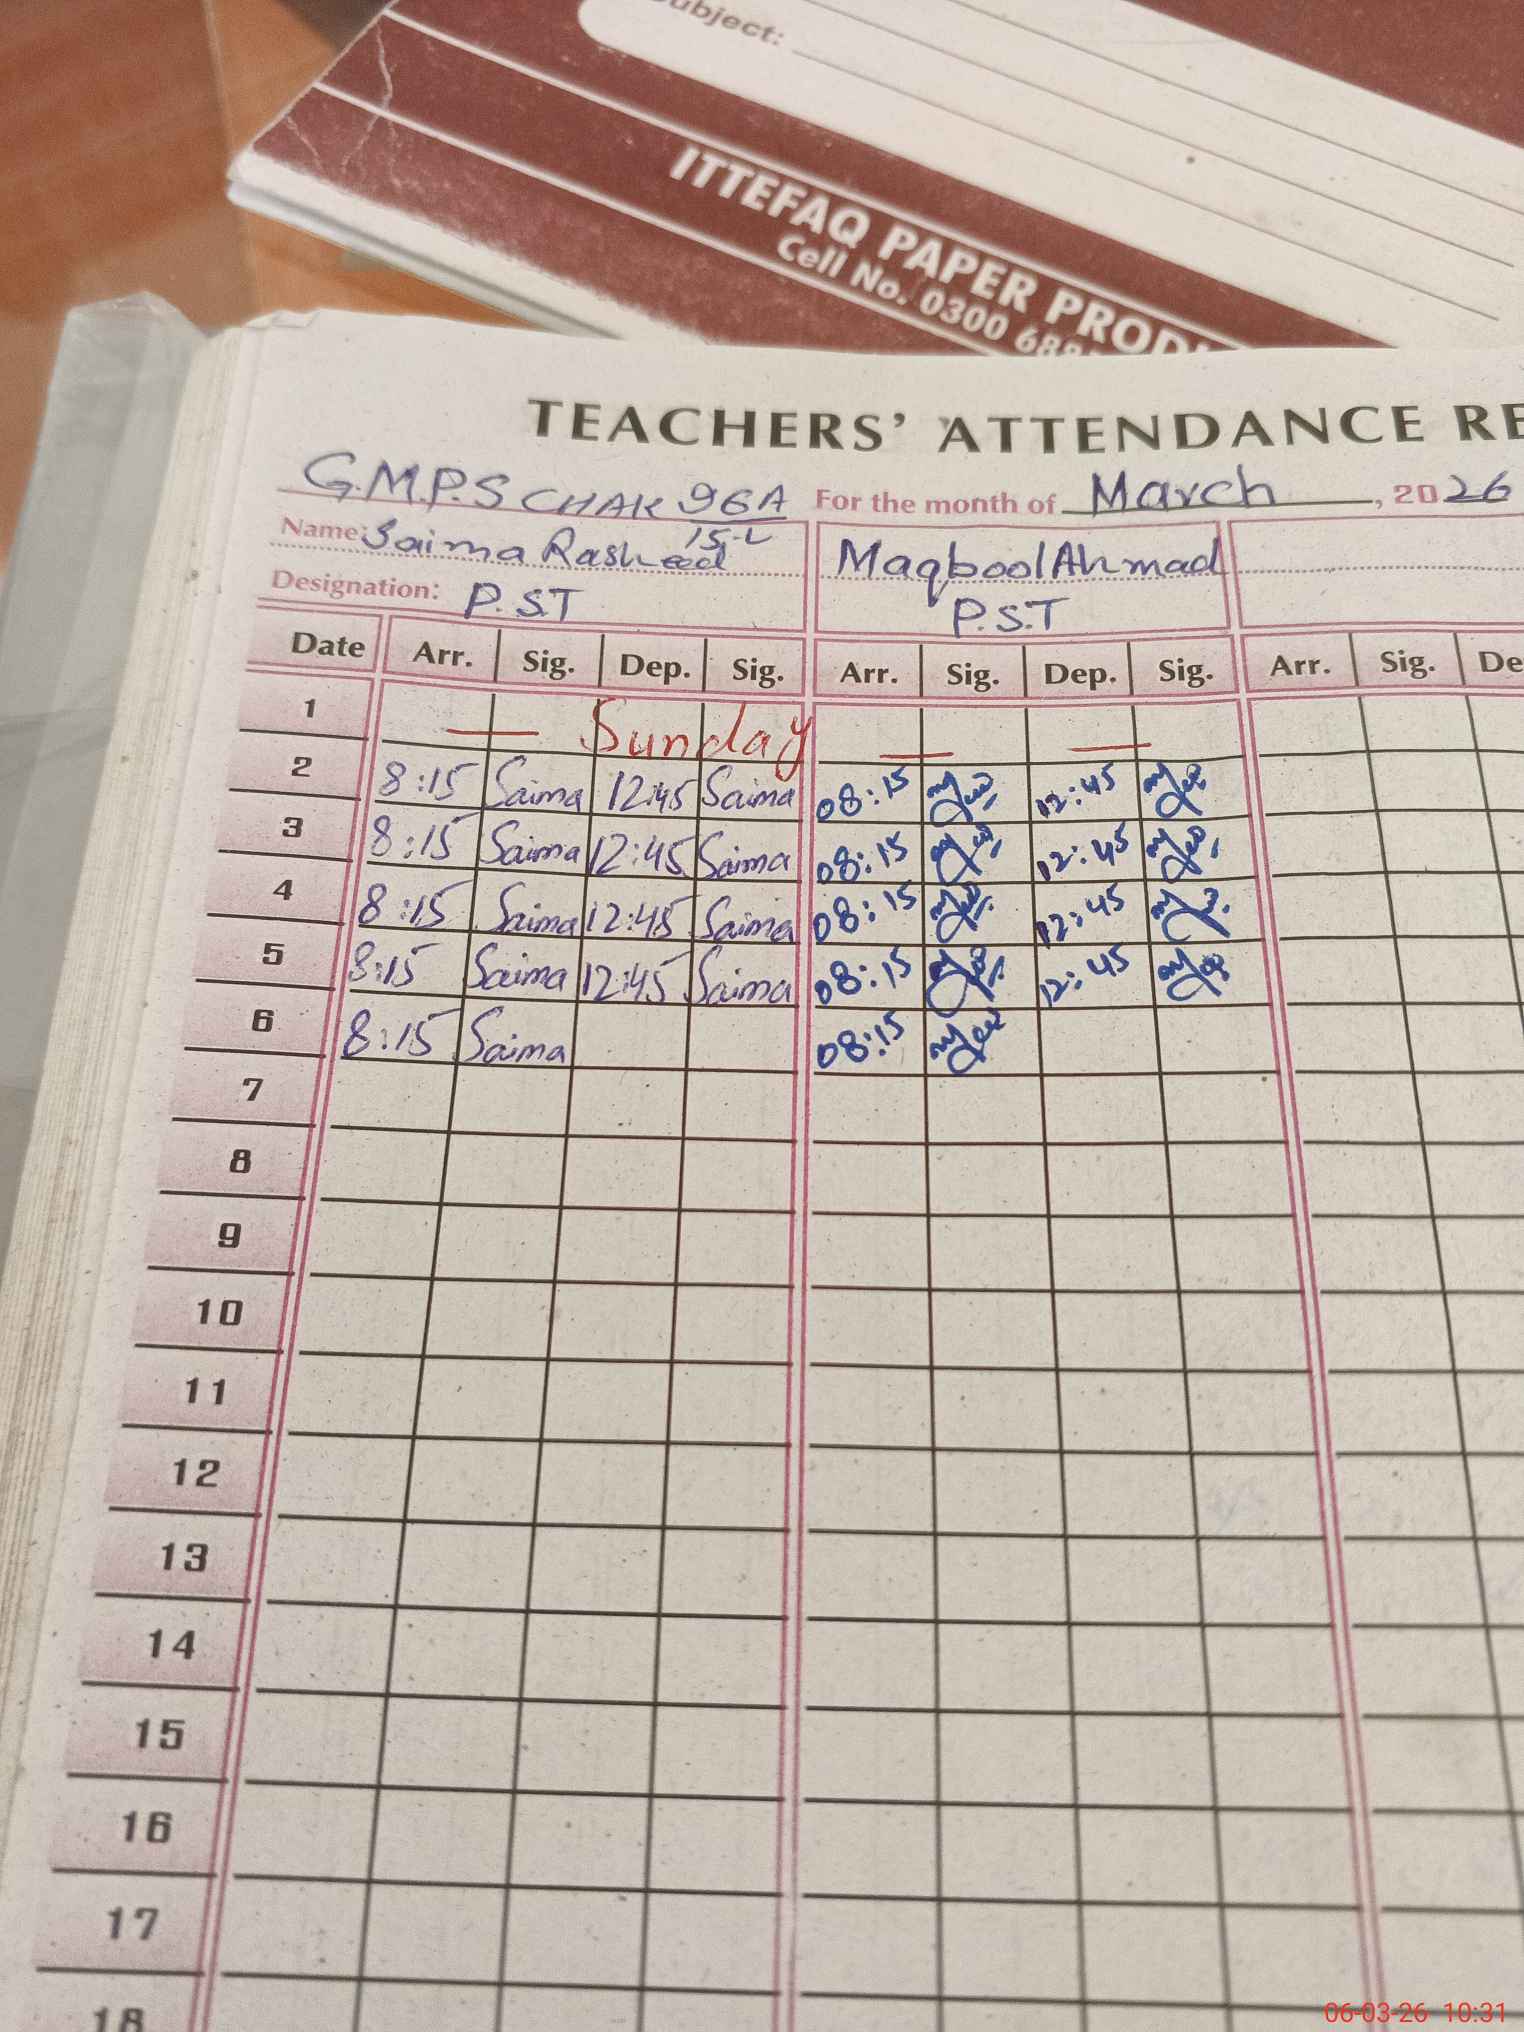 Subject:
ITTEFAQ PAPER
Cell No. 0300
TEACHERS' ATTENDANCE RE
G.M.P.S CHAK 96A/15-L For the month of March, 2026
Name: Saima Rasheed Maqbool Ahmad
Designation: P.S.T P.S.T
Date Arr. Sig. Dep. Sig. Arr. Sig. Dep. Sig. Arr. Sig. De
1 — Sunday — —
2 8:15 Saima 12:45 Saima 08:15 12:45
3 8:15 Saima 12:45 Saima 08:15 12:45
4 8:15 Saima 12:45 Saima 08:15 12:45
5 8:15 Saima 12:45 Saima 08:15 12:45
6 8:15 Saima 08:15
7
8
9
10
11
12
13
14
15
16
17
18
06-03-26 10:31